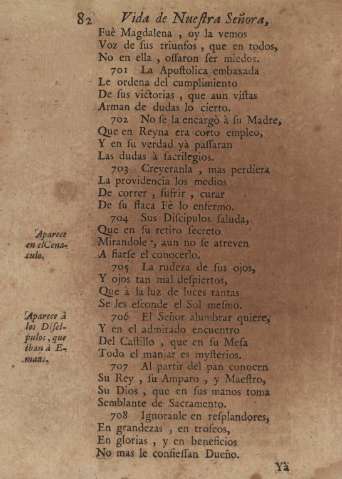 82 Vida de Nuestra Señora,
Fuè Magdalena, oy la vemos
Voz de sus triunfos, que en todos,
No en ella, ossaron ser miedos.
701 La Apostolica embaxada
Le ordena del cumplimiento
De sus victorias, que aun vistas
Arman de dudas lo cierto.
702 No se la encargò à su Madre,
Que en Reyna era corto empleo,
Y en su verdad yà passaran
Las dudas à sacrilegios.
703 Creyeranla, mas perdiera
La providencia los medios
De correr, sufrir, curar
De su flaca Fè lo enfermo.
704 Sus Discipulos saluda,
Que en su retiro secreto
Mirandole, aun no se atreven
A fiarse el conocerlo.
Aparece
en el Cena-
culo.
705 La rudeza de sus ojos,
Y ojos tan mal despiertos,
Que à la luz de luces tantas
Se les esconde el Sol mesmo.
706 El Señor alumbrar quiere,
Y en el admirado encuentro
Del Castillo, que en su Mesa
Todo el manjar es mysterios.
Aparece à
los Disci-
pulos, que
iban à E-
maus.
707 Al partir del pan conocen
Su Rey, su Amparo, y Maestro,
Su Dios, que en sus manos toma
Semblante de Sacramento.
708 Ignoranle en resplandores,
En grandezas, en trofeos,
En glorias, y en beneficios
No mas le confiessan Dueño.
Yà